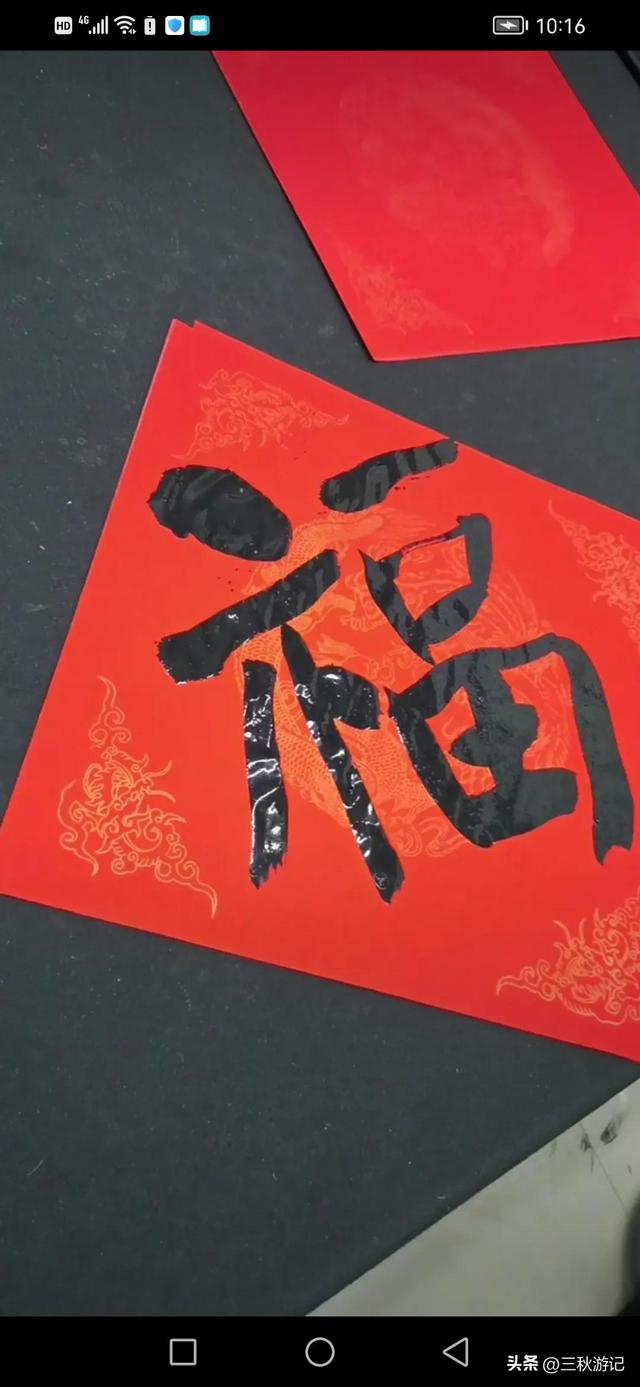 HD 4G 10:16
福
头条 @三秋游记